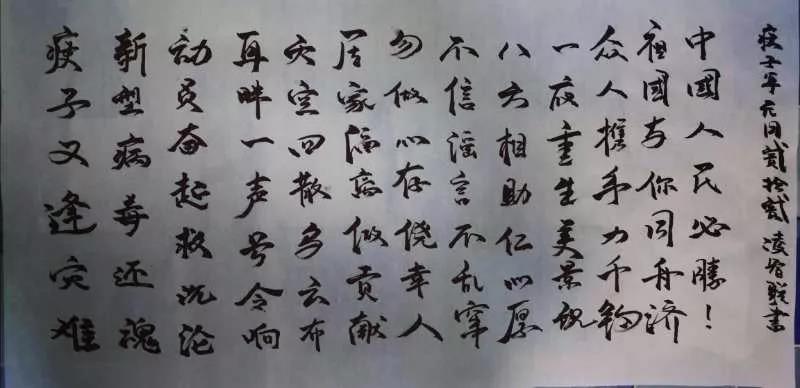 庚子又逢灾难
新型病毒还魂
动员奋起救沉沦
耳畔一声号令响
灾 四散乌云布
居家隔离做贡献
勿做心存侥幸人
不信谣言不乱窜
八方相助仁心愿
一夜重生美景
众人携手力千钧
祖國与你同舟济
中國人民必勝！
庚子年元月贰拾贰 凌 书